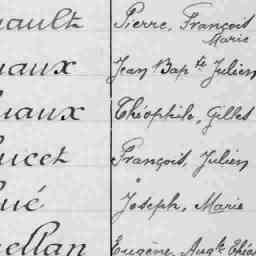 nault Pierre, François
Marie
uaux Jean Bapte Julien
uaux Théophile, Gillet
uicet François, Julien
ué Joseph, Marie
ellan Eugène, Augte